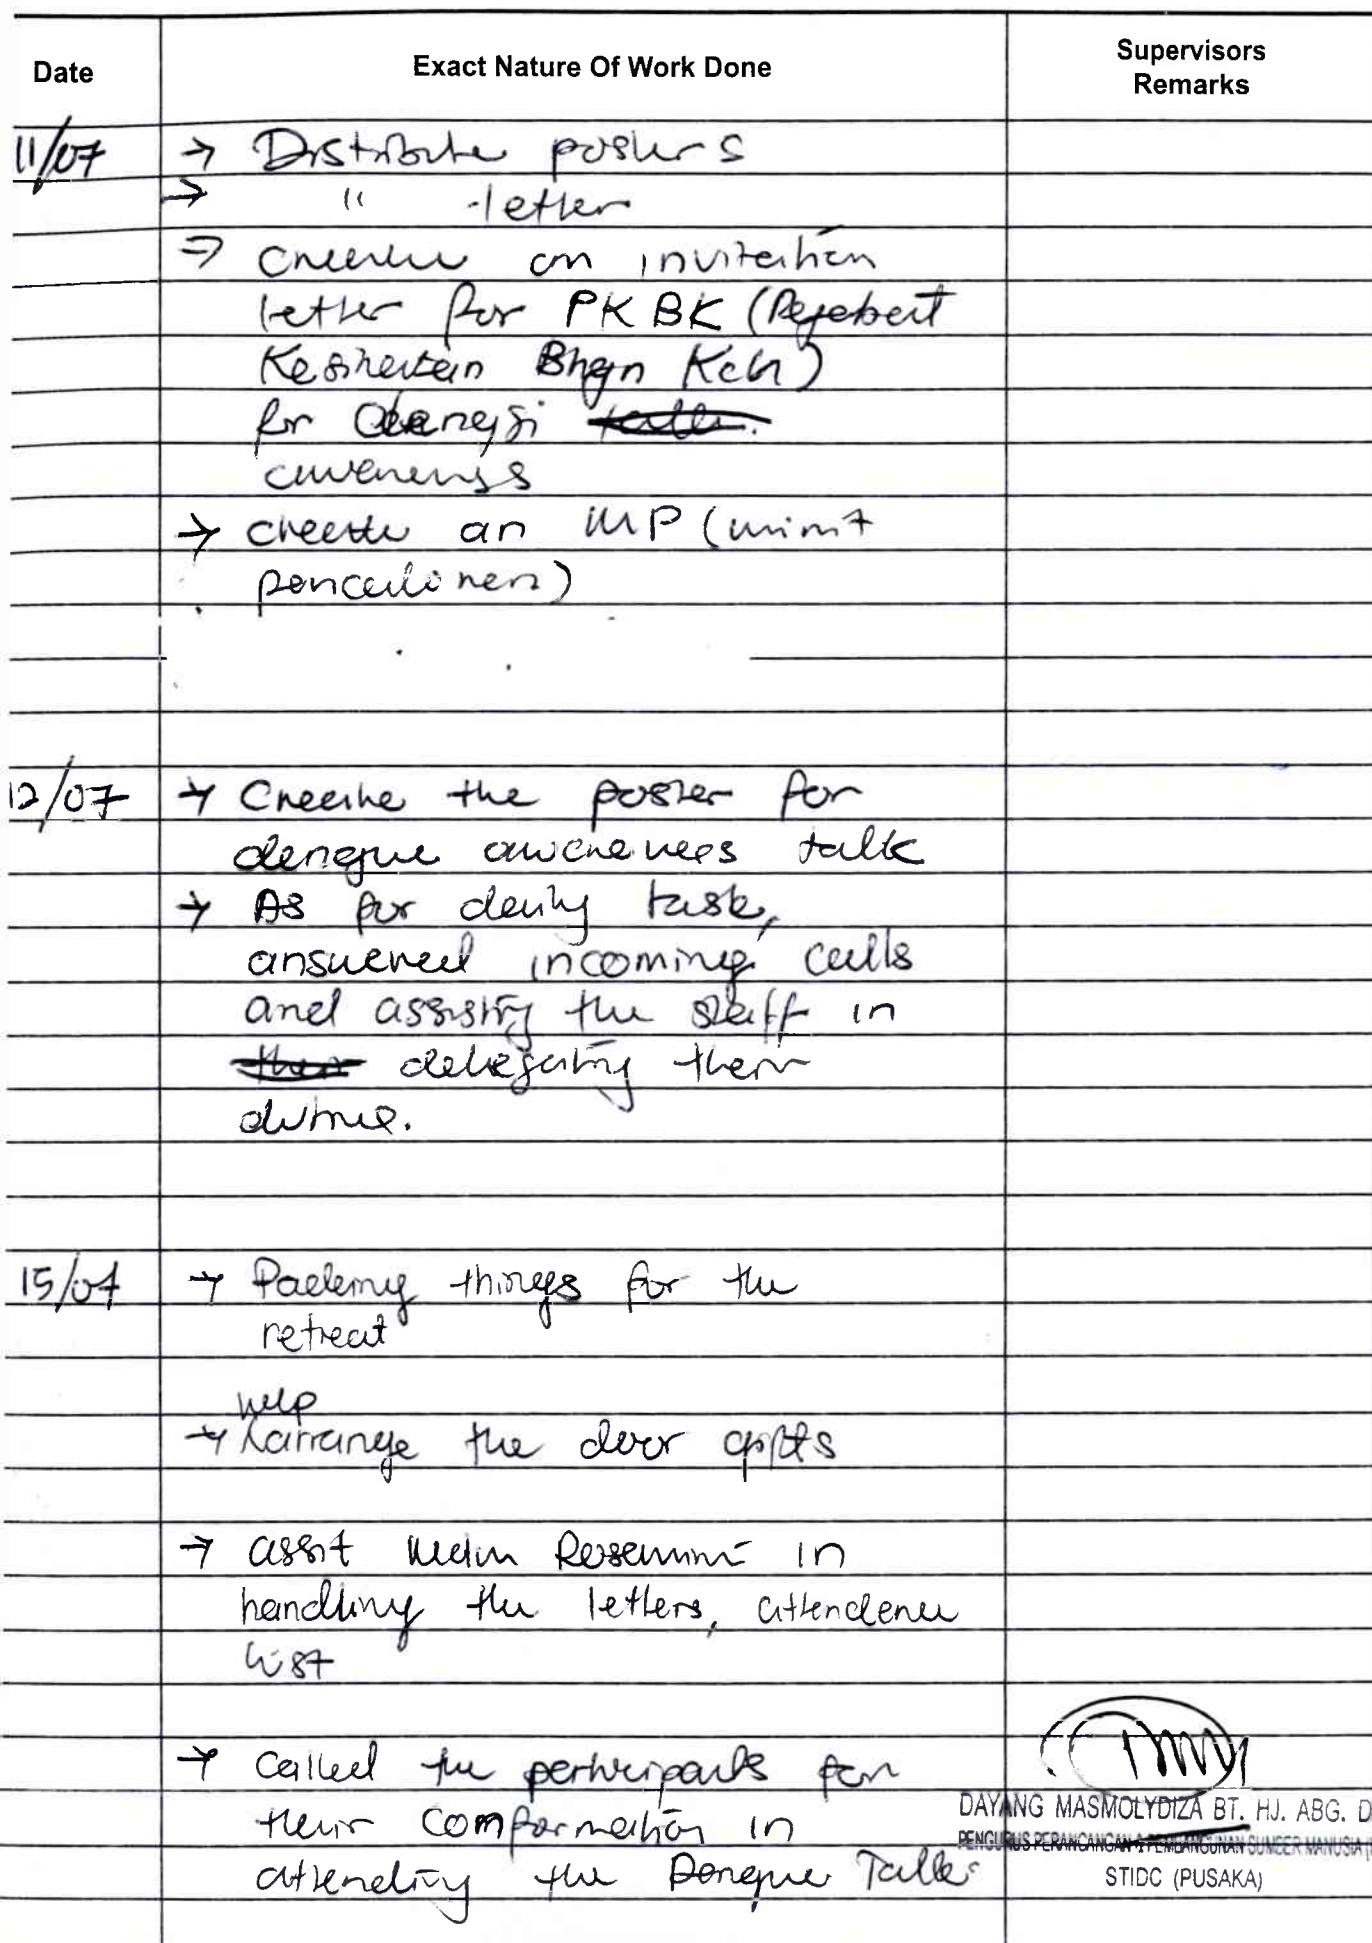 Date
Exact Nature Of Work Done
Supervisors
Remarks
11/07
→ Distribute posters
→ " letter
→ Create an invitation
letter for PKBK (Pejabat
Kesihatan Bhgn Kch)
for
awareness
→ create an MP (minit
12/07
→ Create the poster for
dengue awareness talk
→ As for daily task,
answered incoming calls
and assisting the staff in
delegating their
duties.
15/07
→ Packing things for the
retreat
help
→ arrange the door gifts
→ assit Mdm in
handling the letters, attendance
list
→ Called the participants for
their comformation in
attending the Dengue Talk.
DAYANG MASMOLYDIZA BT. HJ. ABG. D
PENGURUS PERANCANGAN & PEMBANGUNAN SUMBER MANUSIA
STIDC (PUSAKA)